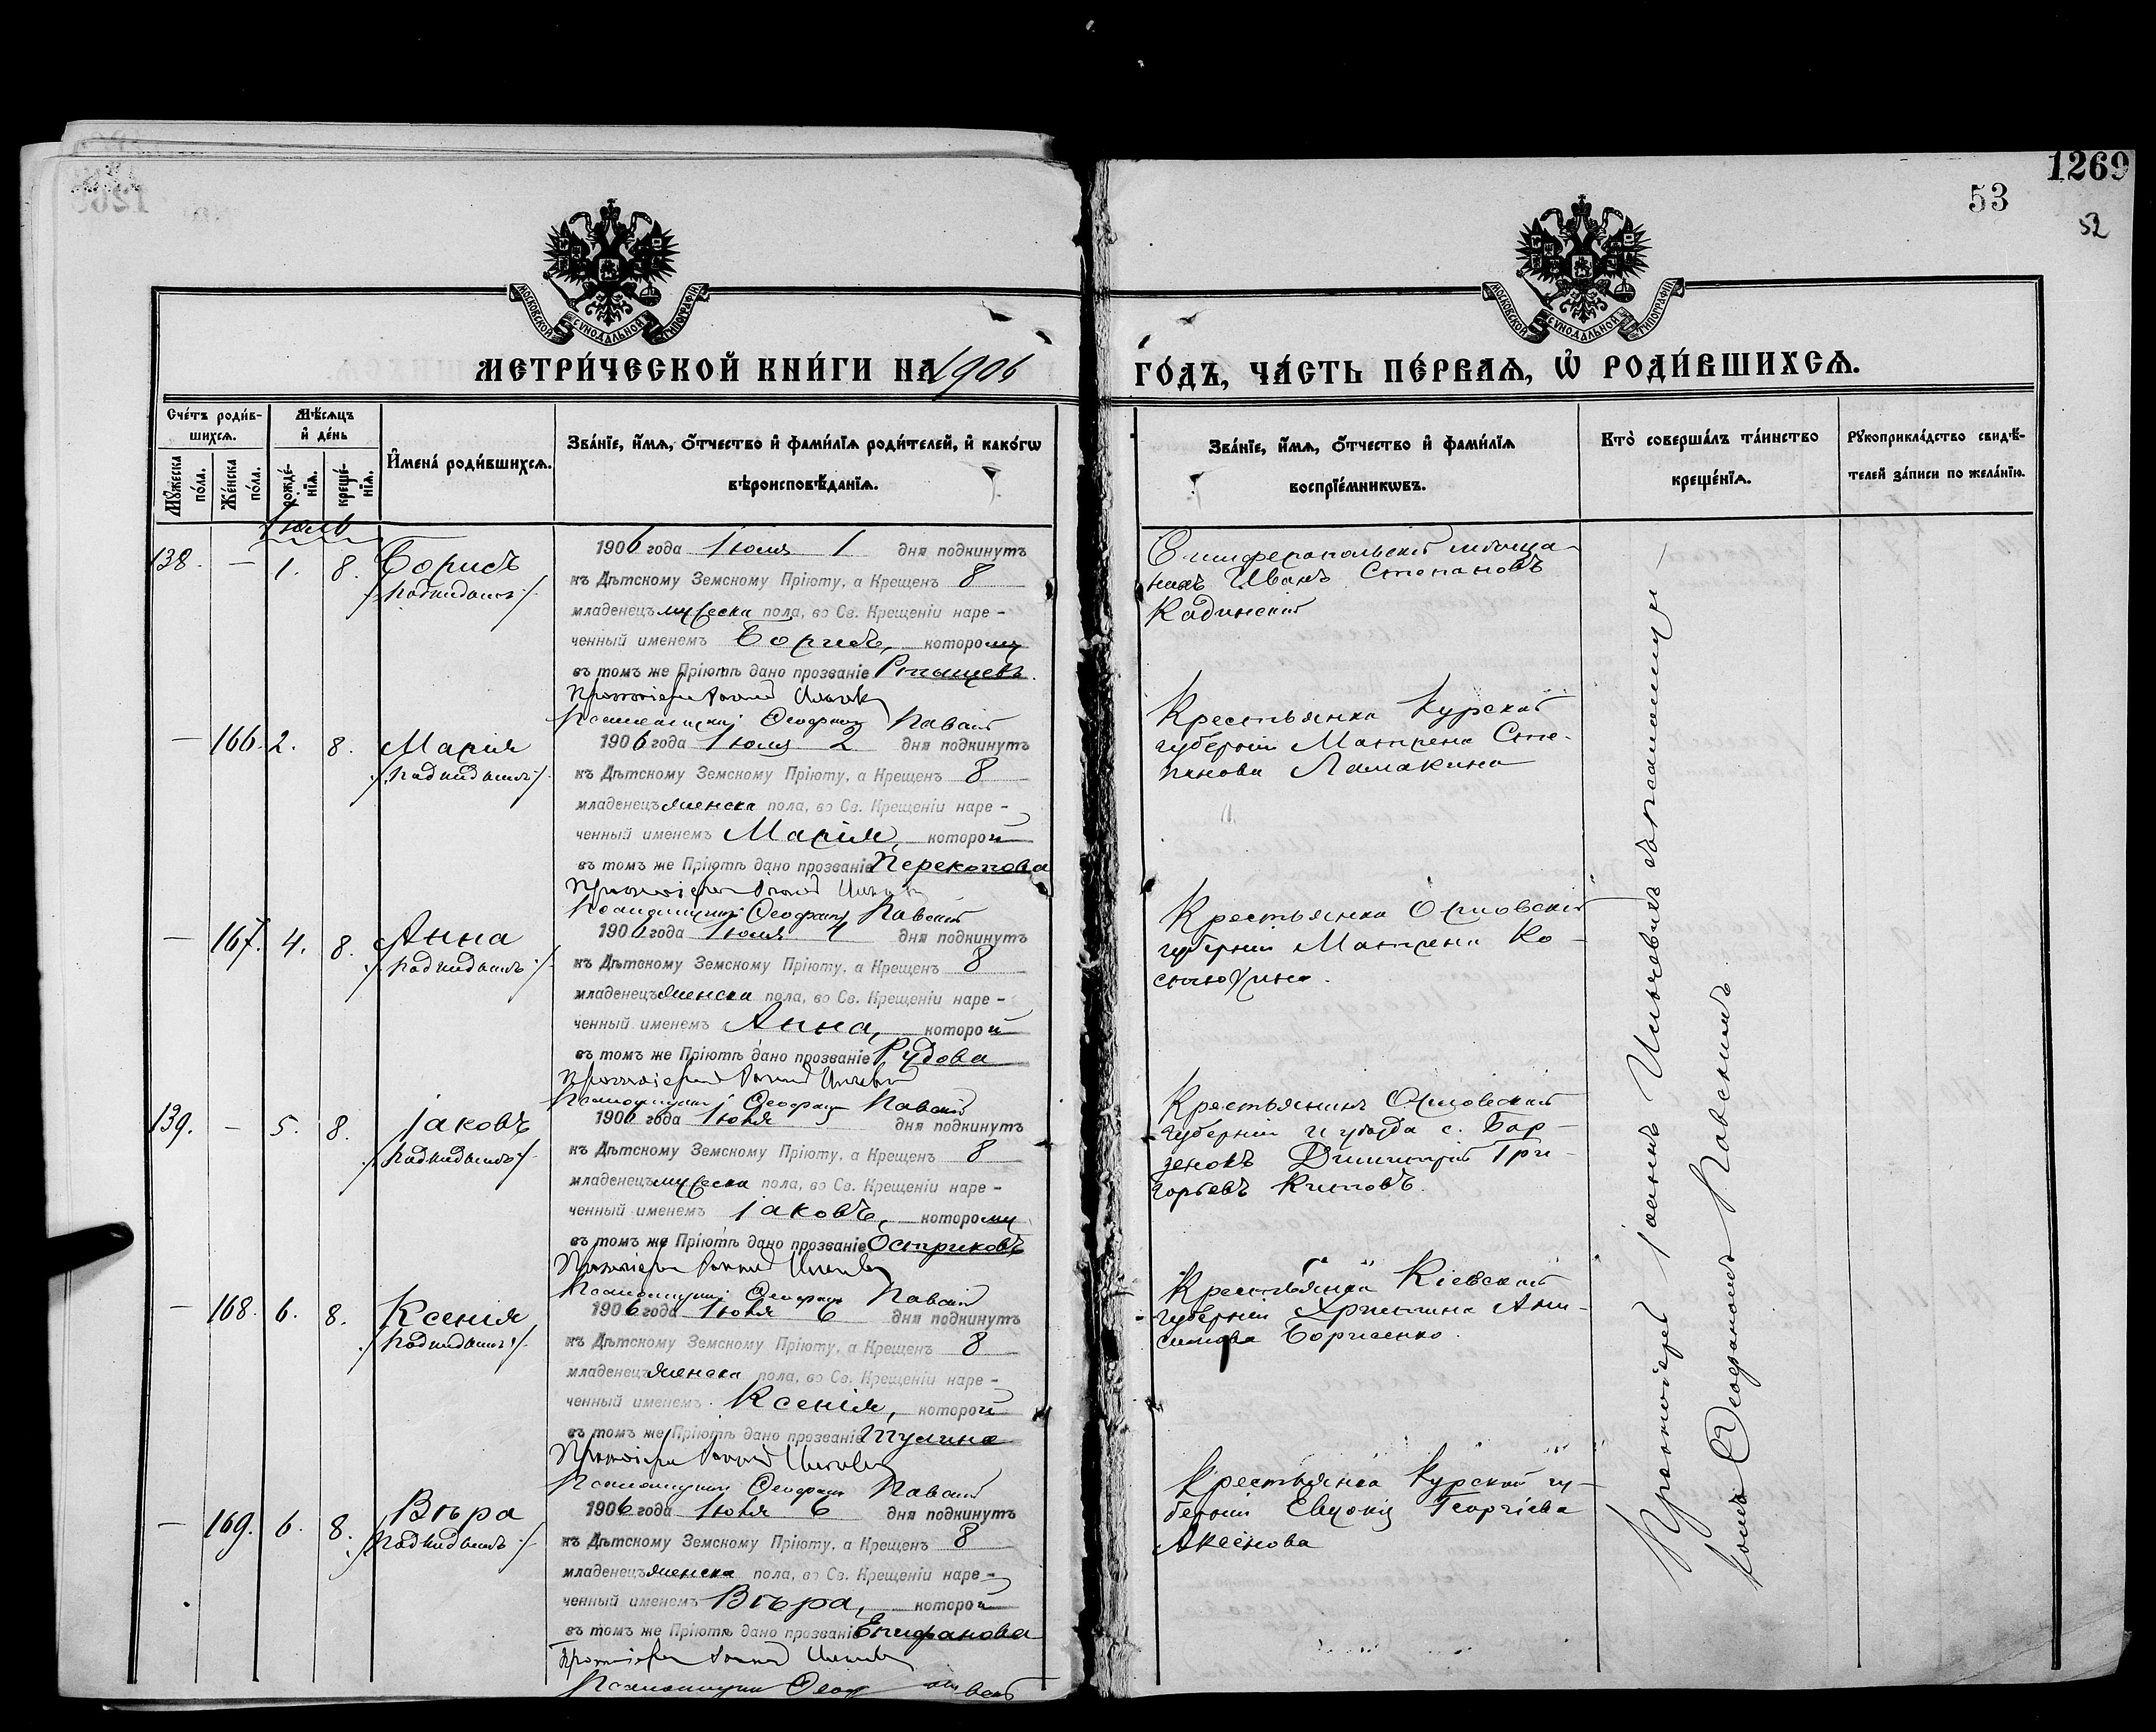 1269
53
52
МОСКОВСКОЙ СУНОДАЛЬНОЙ ТИПОГРАФІИ
МОСКОВСКОЙ СУНОДАЛЬНОЙ ТИПОГРАФІИ
МЕТРИ́ЧЕСКОЙ КНИ́ГИ НА 1906
ГО́ДЪ, ЧА́СТЬ ПЕ́РВАѦ, Ѡ҆ РОДИ́ВШИХСѦ.
Сче́тъ роди́вшихсѧ.
Мꙋ́жеска по́ла.
Же́нска по́ла.
Мѣ́сѧцъ и҆ де́нь
рожде́нїѧ.
креще́нїѧ.
И҆мена̀ роди́вшихсѧ.
Зва́нїе, и҆́мѧ, ѻ҆́тчество и҆ фами́лїѧ роди́телей, и҆ како́гѡ
вѣроисповѣ́данїѧ.
Зва́нїе, и҆́мѧ, ѻ҆́тчество и҆ фами́лїѧ
воспрїе́мникѡвъ.
Кто̀ соверша́лъ та́инство
креще́нїѧ.
Рꙋкоприкла́дство свидѣ́-
телей за́писи по жела́нїю.
Іюль
138. — 1. 8. Борисъ
/подкидышъ/.
1906 года Іюля 1 дня подкинутъ
къ Дѣтскому Земскому Пріюту, а Крещенъ 8
младенецъ мужеска пола, во Св. Крещеніи наре-
ченный именемъ Борисъ, которому
въ томъ же Пріютѣ дано прозваніе Ртищевъ.
Протоіерей Іоаннъ
Псаломщикъ Ѳеофанъ Павскій
Симферопольскій мѣща-
нинъ Иванъ Степановъ
Кадинскій
— 166. 2. 8. Марія
/подкидышъ/.
1906 года Іюля 2 дня подкинутъ
къ Дѣтскому Земскому Пріюту, а Крещенъ 8
младенецъ женска пола, во Св. Крещеніи наре-
ченный именемъ Марія, которой
въ томъ же Пріютѣ дано прозваніе Перекопова
Протоіерей Іоаннъ
Псаломщикъ Ѳеофанъ Павскій
Крестьянка Курской
губерніи Матрена Сте-
панова Ламакина
— 167. 4. 8. Анна
/подкидышъ/.
1906 года Іюля 4 дня подкинутъ
къ Дѣтскому Земскому Пріюту, а Крещенъ 8
младенецъ женска пола, во Св. Крещеніи наре-
ченный именемъ Анна, которой
въ томъ же Пріютѣ дано прозваніе Рудова
Протоіерей Іоаннъ
Псаломщикъ Ѳеофанъ Павскій
Крестьянка Орловской
губерніи Матрена Ко-
стюхина.
139. — 5. 8. Іаковъ
/подкидышъ/.
1906 года Іюля 5 дня подкинутъ
къ Дѣтскому Земскому Пріюту, а Крещенъ 8
младенецъ мужеска пола, во Св. Крещеніи наре-
ченный именемъ Іаковъ, которому
въ томъ же Пріютѣ дано прозваніе Остриковъ
Протоіерей Іоаннъ
Псаломщикъ Ѳеофанъ Павскій
Крестьянинъ Орловской
губерніи и уѣзда с. Бар-
зенокъ Димитрій Гри-
горьевъ Китовъ.
— 168. 6. 8. Ксенія
/подкидышъ/.
1906 года Іюля 6 дня подкинутъ
къ Дѣтскому Земскому Пріюту, а Крещенъ 8
младенецъ женска пола, во Св. Крещеніи наре-
ченный именемъ Ксенія, которой
въ томъ же Пріютѣ дано прозваніе Тулина
Протоіерей Іоаннъ
Псаломщикъ Ѳеофанъ Павскій
Крестьянка Кіевской
губерніи Христина Ани-
симова Борисенко.
— 169. 6. 8. Вѣра
/подкидышъ/.
1906 года Іюля 6 дня подкинутъ
къ Дѣтскому Земскому Пріюту, а Крещенъ 8
младенецъ женска пола, во Св. Крещеніи наре-
ченный именемъ Вѣра, которой
въ томъ же Пріютѣ дано прозваніе Епифанова
Протоіерей Іоаннъ
Псаломщикъ
Крестьянка Курской гу-
берніи Евдокія Георгіева
Аксенова
Протоіерей Іоаннъ Ильчевичъ съ псаломщи-
комъ Ѳеофаномъ Павскимъ